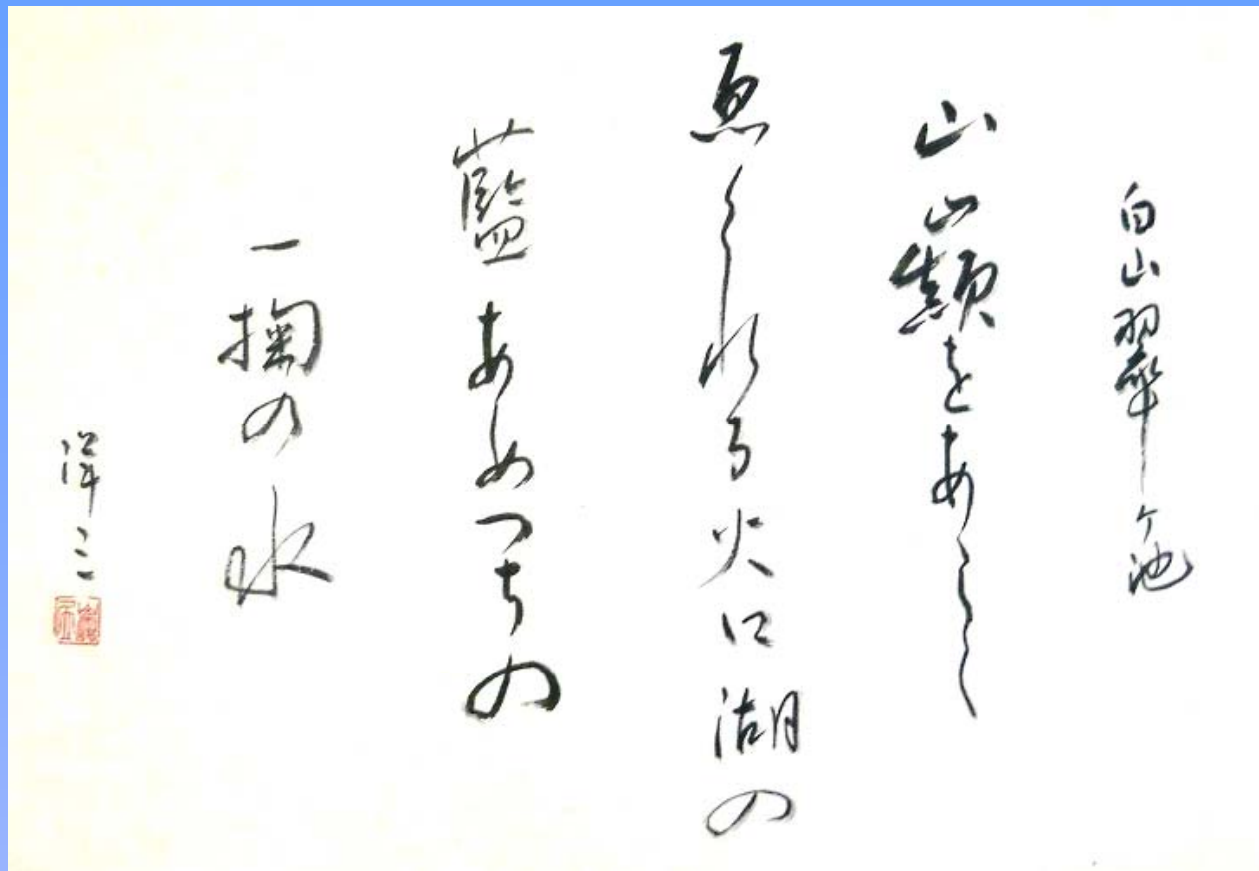 白山翠ヶ池
山巓をあらく
恵くれる火口湖の
藍あめつちの
一掬の水
洋三